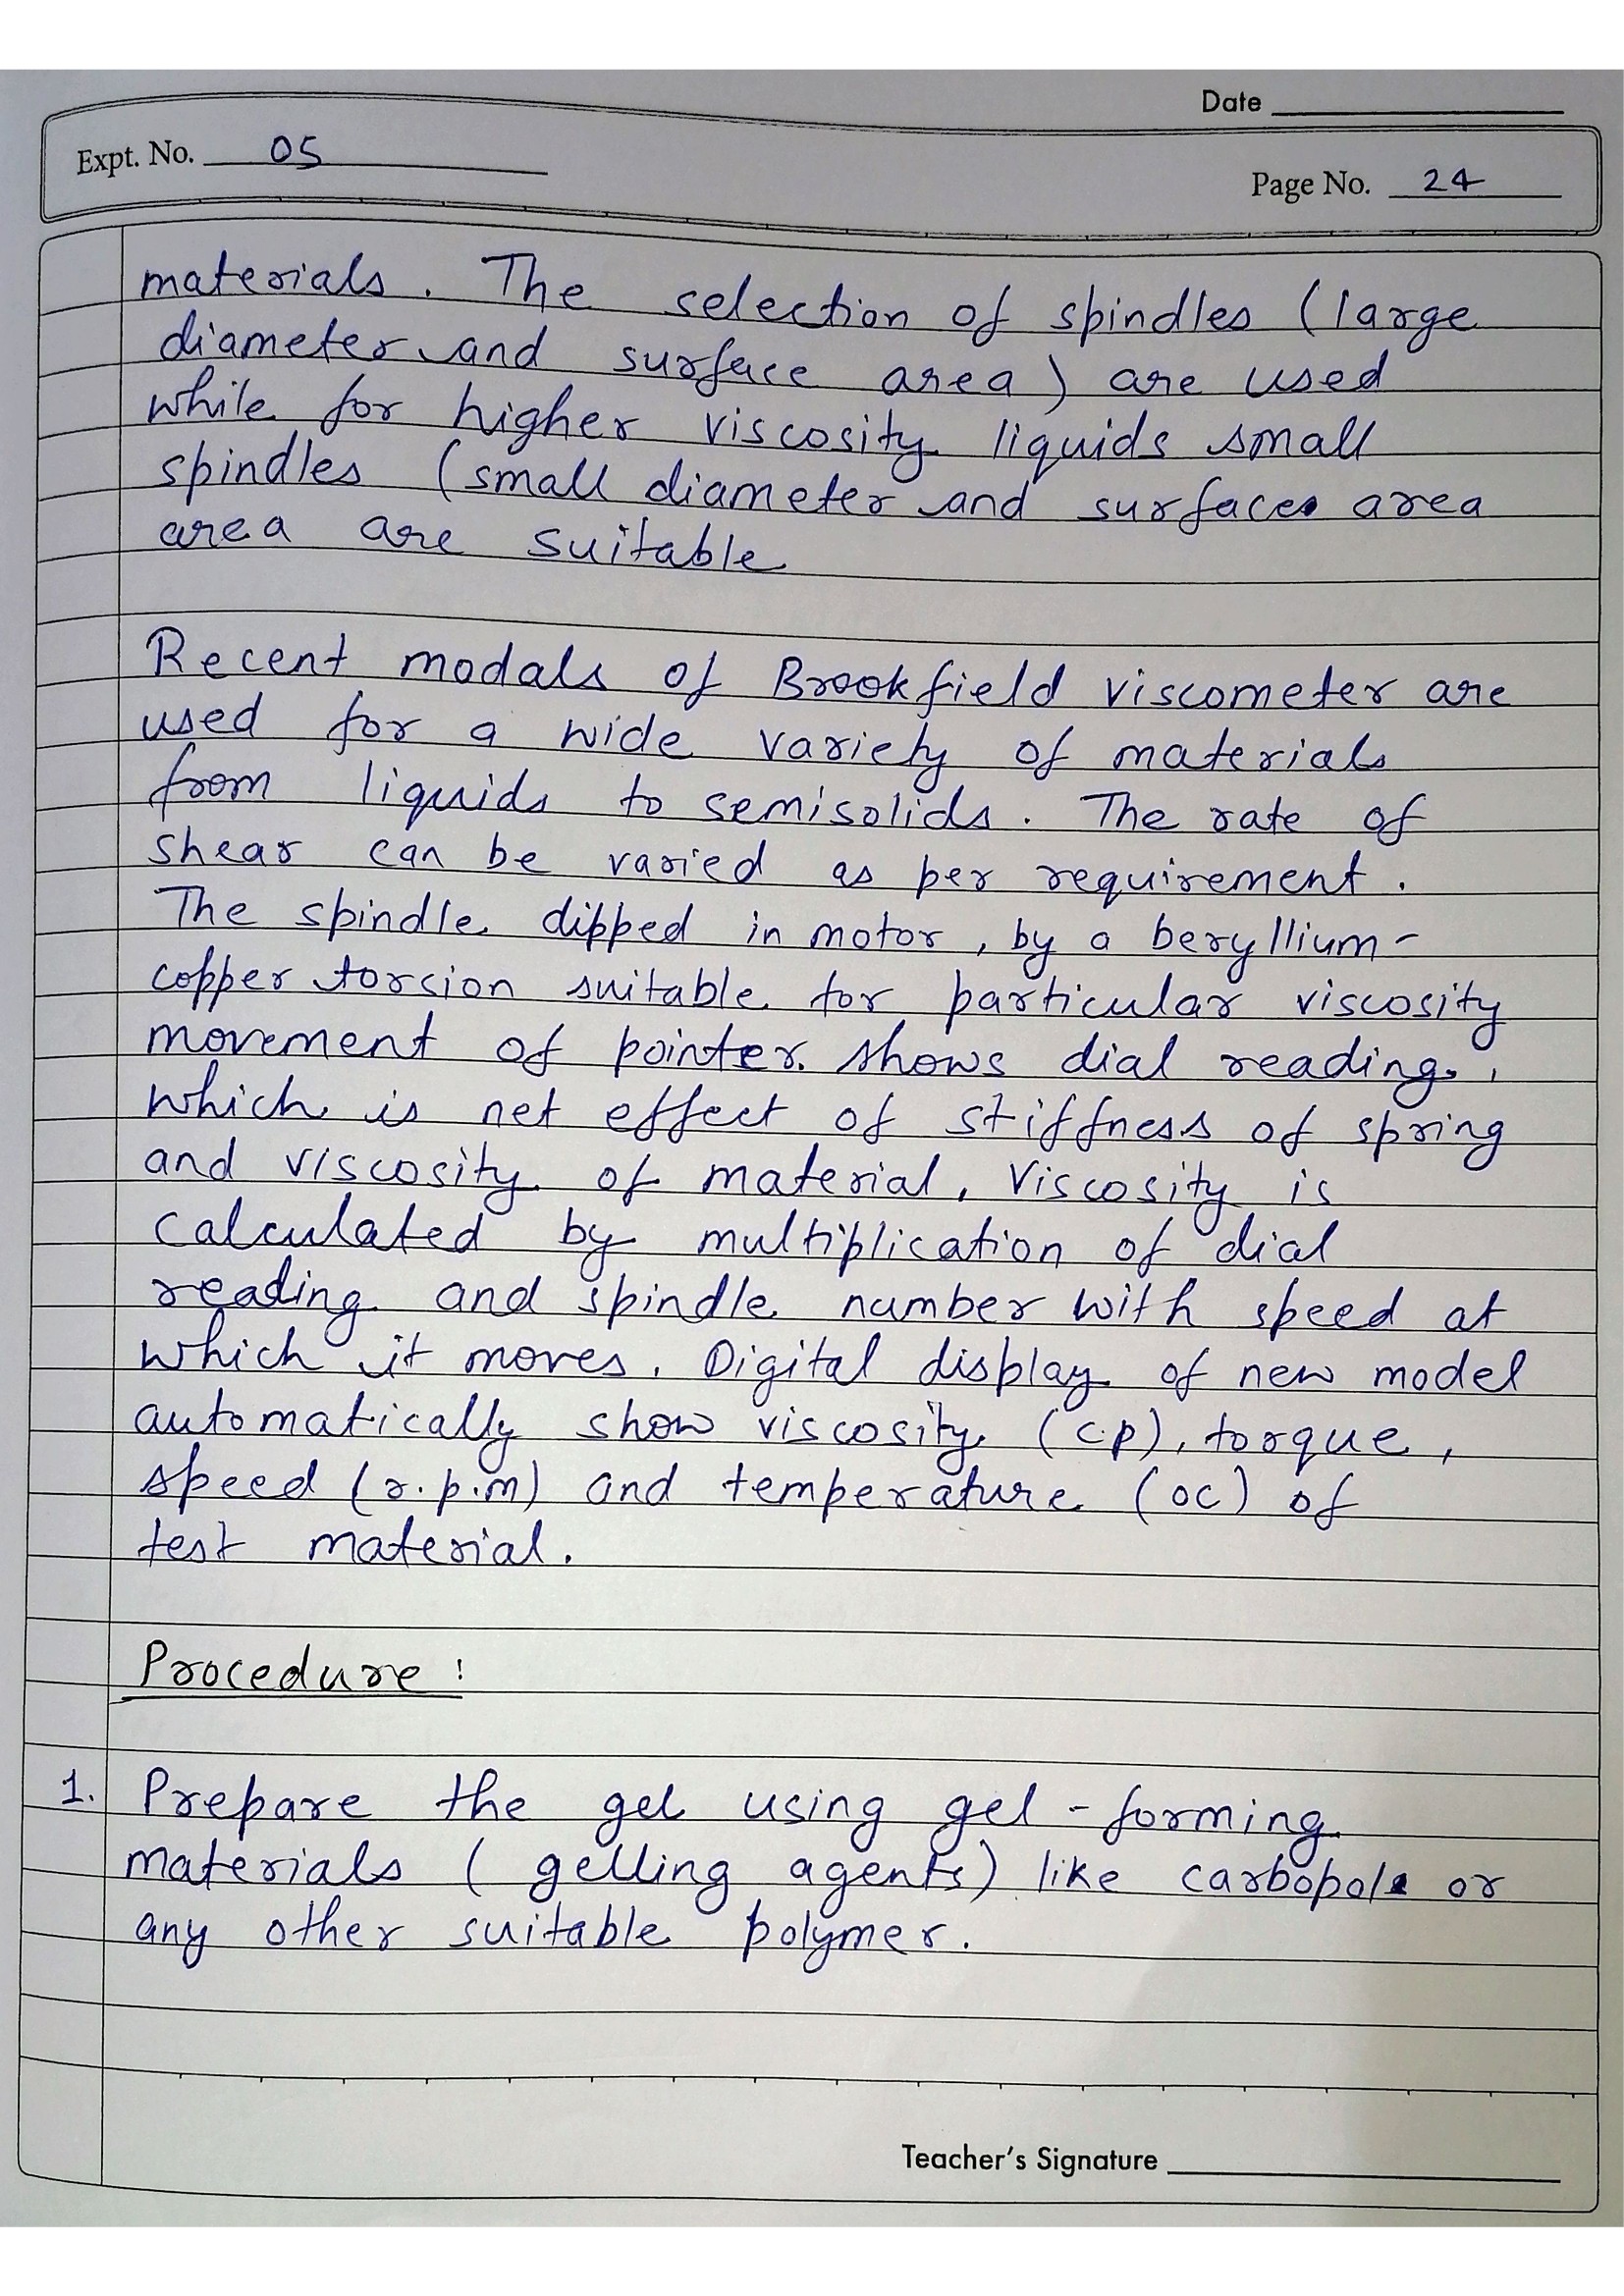 Date
Expt. No. 05
Page No. 24
materials. The selection of spindles (large
diameter and surface area) are used
while for higher viscosity liquids small
spindles (small diameter and surface area
area are suitable
Recent modals of Brookfield viscometer are
used for a wide variety of materials
from liquids to semisolids. The rate of
shear can be varied as per requirement.
The spindle dipped in motor, by a beryllium-
copper torsion suitable for particular viscosity
movement of pointer shows dial reading,
which is net effect of stiffness of spring
and viscosity of material. Viscosity is
calculated by multiplication of dial
reading and spindle number with speed at
which it moves. Digital display of new model
automatically show viscosity (c.p), torque,
speed (r.p.m) and temperature (oc) of
test material.
Procedure:
1. Prepare the gel using gel-forming
materials (gelling agents) like carbopol or
any other suitable polymer.
Teacher's Signature